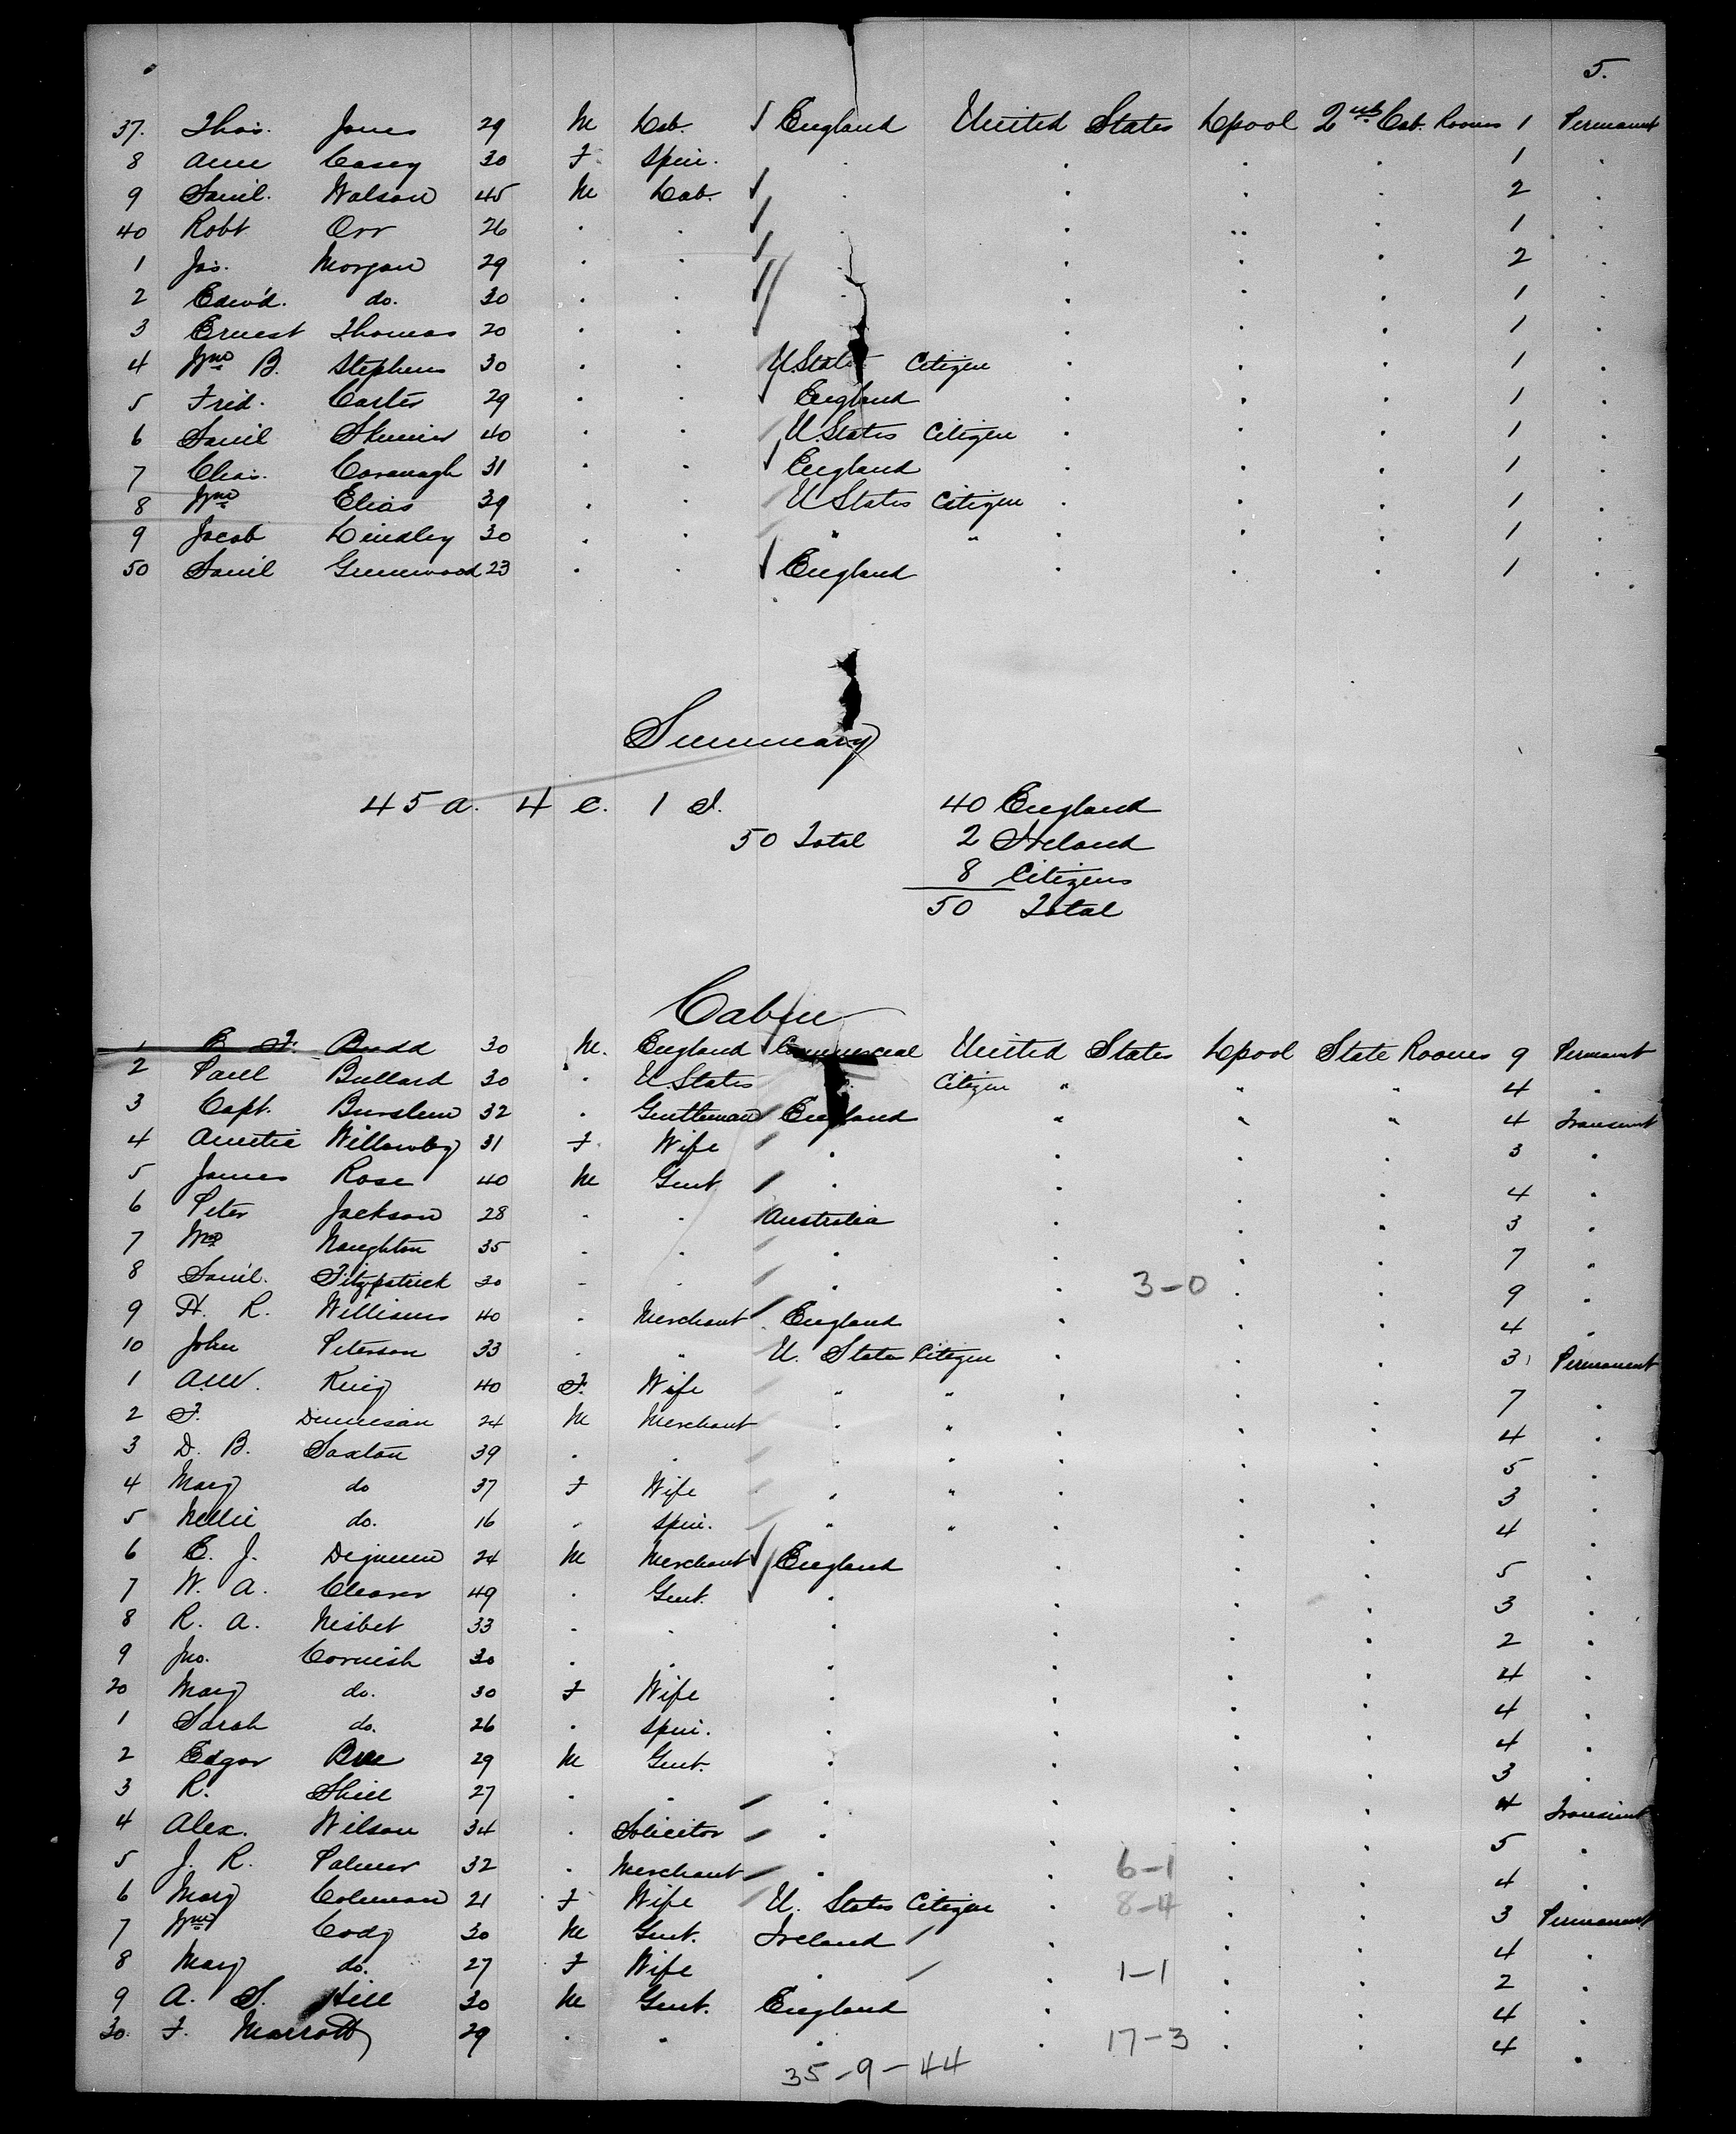 5.
37. Thos. Jones 29 M Lab. England United States Lpool 2nd Cab. Rooms 1 Permanent
8 Ann Casey 30 F Spin. . . . . 1 .
9 Saml. Watson 45 M Lab. . . . . 2 .
40 Robt Orr 26 . . . .. . 1 .
1 Jas. Morgan 29 . . . . . 2 .
2 Edw'd. do. 30 . . . . . . 1 .
3 Ernest Thomas 20 . . . . . 1 .
4 Wm B. Stephens 30 . . U. States Citizen . . . 1 .
5 Fred. Carter 29 . . England . . . 1 .
6 Saml Skinner 40 . . U. States Citizen . . . 1 .
7 Chas. Cavanagh 31 . . England . . . 1 .
8 Wm Elias 39 . . U States Citizen . . . 1 .
9 Jacob Lindley 30 . . " " . . . 1 .
50 Saml Greenwood 23 . . England . . . 1 .
Summary
45 a. 4 c. 1 I. 40 England
50 Total 2 Ireland
8 Citizens
50 Total
Cabin
1 E F. Budd 30 M. England Commercial United States Lpool State Rooms 9 Permant
2 Paul Bullard 30 . U. States Citizen " " " 4 .
3 Capt. Burslem 32 . Gentleman England " " " 4 Transient
4 Willowby 31 F. Wife . . . . 3 .
5 James Rose 40 M Gent . . . . 4 .
6 Peter Jackson 28 . . Australia . . . 3 .
7 Wm Naughton 35 . . . . . . 7 "
8 Saml. Fitzpatrick 30 . . . . 3-0 . . 9 .
9 H. R. Williams 40 . Merchant England . . . 4 .
10 John Peterson 33 . " U. States Citizen . . . 3 Permanent
1 A.W. King 40 F. Wife " " . . . 7 .
2 F. 24 M Merchant . " . . . 4 .
3 D. B. Saxton 39 . . . " . . . 5 .
4 Mary do 37 F Wife . " . . . 3 .
5 Nellie do. 16 . Spin. " " . . . 4 .
6 E. J. 24 M Merchant England . . . 5 .
7 W. A. Cleaver 49 . Gent. . . . . 3 .
8 R. A. Nisbet 33 . . . . . . 2 .
9 Jno. Cornish 30 . . . . . . 4 .
20 Mary do. 30 F Wife . . . . 4 .
1 Sarah do. 26 . Spin. . . . . 4 .
2 Edgar 29 M Gent. . . . . 3 .
3 R. Shiel 27 . . . . . . 4 Transient
4 Alex. Wilson 34 . Solicitor . . . . 5 .
5 J. R. Palmer 32 . Merchant . . 6-1 . . 4 .
6 Mary Coleman 21 F Wife U. States Citizen . 8-4 . . 3 Permanent
7 Wm Cody 30 M Gent. Ireland . . . 4 .
8 Mary do. 27 F Wife . . 1-1 . . 2 .
9 A. S. Hill 30 M Gent. England . . . 4 .
30. F. Marrott 29 . " . . 17-3 . . 4 .
35-9-44